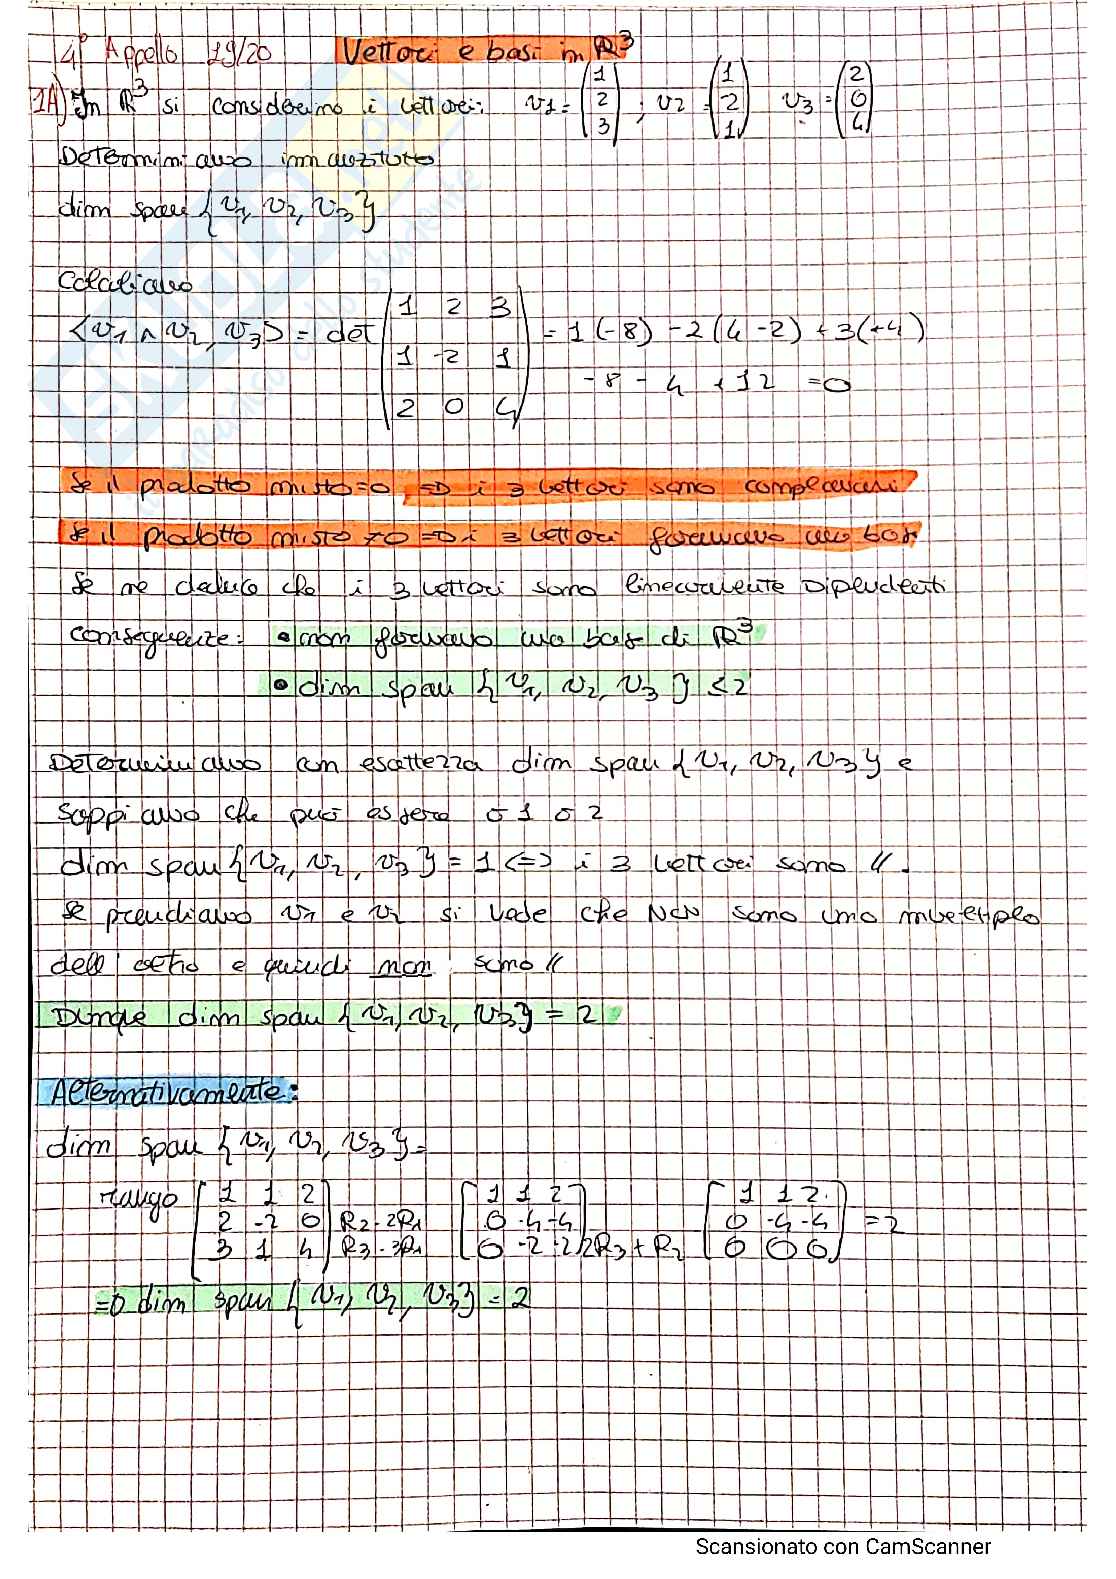 4° Appello 19/20 Vettori e basi in R³
1A) In R³ si considerino i vettori: v1 = (1 2 3) ; v2 = (1 -2 1) v3 = (2 0 4)
Determiniamo innanzitutto
dim span {v1, v2, v3}
Calcoliamo
<v1 ∧ v2, v3> = det (1 2 3 / 1 -2 1 / 2 0 4) = 1(-8) -2(4-2) + 3(+4)
-8 - 4 + 12 = 0
Se il prodotto misto = 0 => i 3 vettori sono complanari
Se il prodotto misto ≠ 0 => i 3 vettori formano una base
Se ne deduce che i 3 vettori sono linearmente dipendenti
conseguenze: • non formano una base di R³
• dim span {v1, v2, v3} ≤ 2
Determiniamo con esattezza dim span {v1, v2, v3} e
sappiamo che può essere o 1 o 2
dim span {v1, v2, v3} = 1 <=> i 3 vettori sono // .
Se prendiamo v1 e v2 si vede che NON sono uno multiplo
dell'altro e quindi non sono //
Dunque dim span {v1, v2, v3} = 2
Alternativamente:
dim span {v1, v2, v3} =
rango [1 1 2 / 2 -2 0 / 3 1 4] R2-2R1 R3-3R1 [1 1 2 / 0 -4 -4 / 0 -2 -2] 2R3+R2 [1 1 2 / 0 -4 -4 / 0 0 0] = 2
=> dim span {v1, v2, v3} = 2
Scansionato con CamScanner